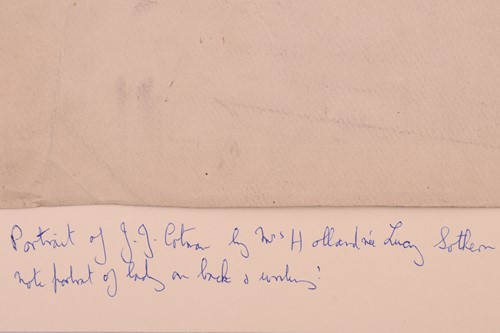 Portrait of J.J. Cotman by Mrs Holland née Lucy Sothern
note portrait of lady on back & working!